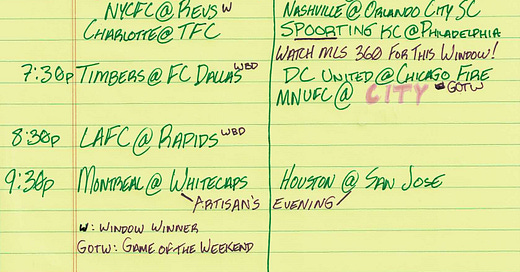 NYCFC @ REVS W
CHARLOTTE @ TFC
NASHVILLE @ ORLANDO CITY SC
SPOORTING KC @ PHILADELPHIA
WATCH MLS 360 FOR THIS WINDOW!
7:30p TIMBERS @ FC DALLAS WBD
DC UNITED @ CHICAGO FIRE
MNUFC @ CITY GOTW
8:30p LAFC @ RAPIDS WBD
9:30p MONTREAL @ WHITECAPS
HOUSTON @ SAN JOSE
ARTISAN'S EVENING
W: WINDOW WINNER
GOTW: GAME OF THE WEEKEND